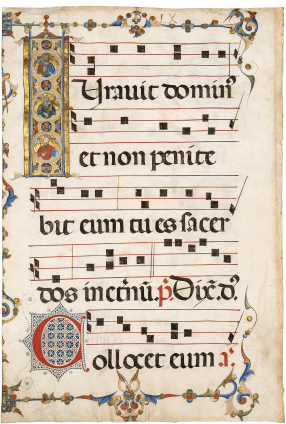 IX
IUravit dominꝰ
et non penite
bit eum tu es sacer
dos in et̄nū. p̄. Dix̄. d̄.
Collocet eum